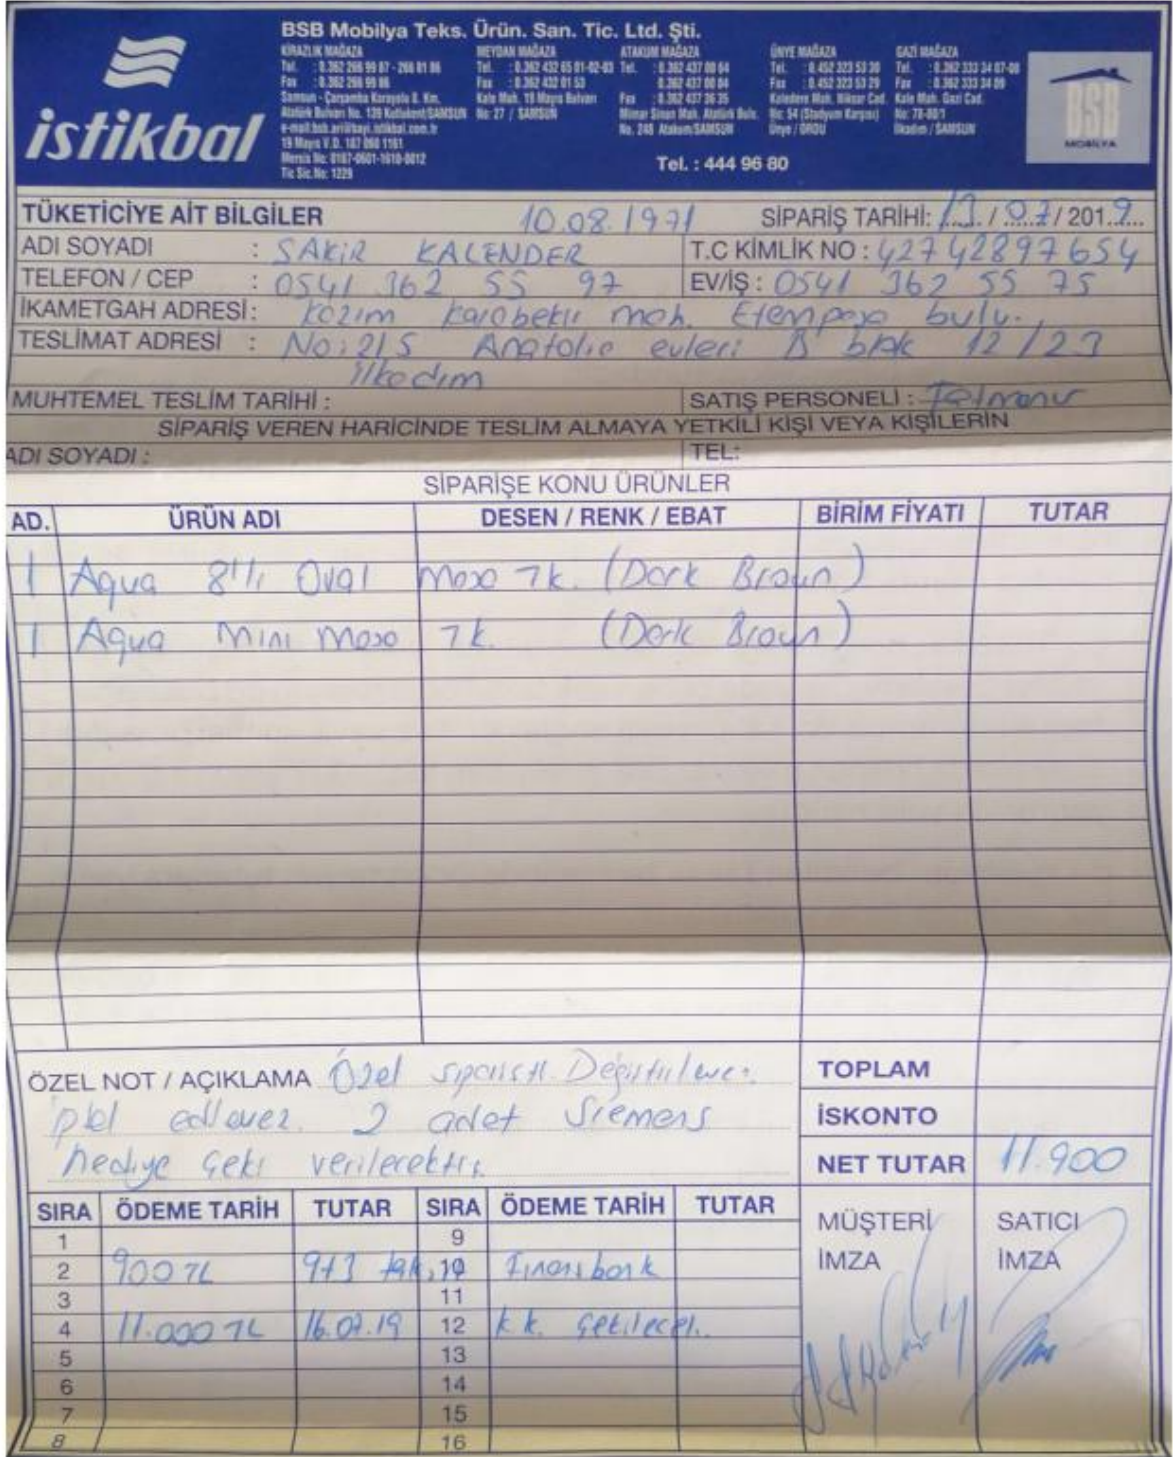 BSB Mobilya Teks. Ürün. San. Tic. Ltd. Şti.
KİRAZLIK MAĞAZA
Tel. : 0.362 266 99 87 - 266 81 86
Fax : 0.362 266 99 86
Samsun - Çarşamba Karayolu 8. Km.
Atatürk Bulvarı No. 139 Kutlukent/SAMSUN
19 Mayıs V.D. 187 060 1161
Mersis No: 0187-0601-1610-0012
Tic Sic. No: 1229
MEYDAN MAĞAZA
Tel. : 0.362 432 65 01-02-03
Fax : 0.362 432 01 53
Kale Mah. 19 Mayıs Bulvarı
No: 27 / SAMSUN
ATAKUM MAĞAZA
Tel. : 0.362 437 00 64
0.362 437 00 84
Fax : 0.362 437 36 35
Mimar Sinan Mah. Atatürk Bulv.
No. 248 Atakum/SAMSUN
ÜNYE MAĞAZA
Tel. : 0.452 323 53 30
Fax : 0.452 323 53 29
Kaledere Mah. Niksar Cad.
No: 54 (Stadyum Karşısı)
Ünye / ORDU
GAZİ MAĞAZA
Tel. : 0.362 333 34 07-08
Fax : 0.362 333 34 09
Kale Mah. Gazi Cad.
No: 78-80/1
İlkadım / SAMSUN
Tel. : 444 96 80
istikbal
BSB
MOBİLYA
TÜKETİCİYE AİT BİLGİLER 10.08.1971 SİPARİŞ TARİHİ: 13 / 07 / 2019
ADI SOYADI : ŞAKİR KALENDER T.C KİMLİK NO : 42742897654
TELEFON / CEP : 0541 362 55 97 EV/İŞ : 0541 362 55 75
İKAMETGAH ADRESİ : Kazım Karabekir mah. Etempaşa bulv.
TESLİMAT ADRESİ : No: 215 Anatolia evleri B blok 12/23
ilkadım
MUHTEMEL TESLİM TARİHİ : SATIŞ PERSONELİ :
SİPARİŞ VEREN HARİCİNDE TESLİM ALMAYA YETKİLİ KİŞİ VEYA KİŞİLERİN
ADI SOYADI : TEL:
SİPARİŞE KONU ÜRÜNLER
AD. ÜRÜN ADI DESEN / RENK / EBAT BİRİM FİYATI TUTAR
1 Aqua 8'li Oval Masa Tk. (Dark Braun)
1 Aqua Mini Masa Tk. (Dark Braun)
ÖZEL NOT / AÇIKLAMA Özel sipariştir. Değiştirilemez.
iptal edilemez. 2 adet Siemens
hediye çeki verilecektir.
TOPLAM
İSKONTO
NET TUTAR 11.900
SIRA ÖDEME TARİH TUTAR SIRA ÖDEME TARİH TUTAR
MÜŞTERİ İMZA
SATICI İMZA
1 9
2 900 TL 9+3 tak. 10 Finansbank
3 11
4 11.000 TL 16.07.19 12 k.k. çekilecek.
5 13
6 14
7 15
8 16